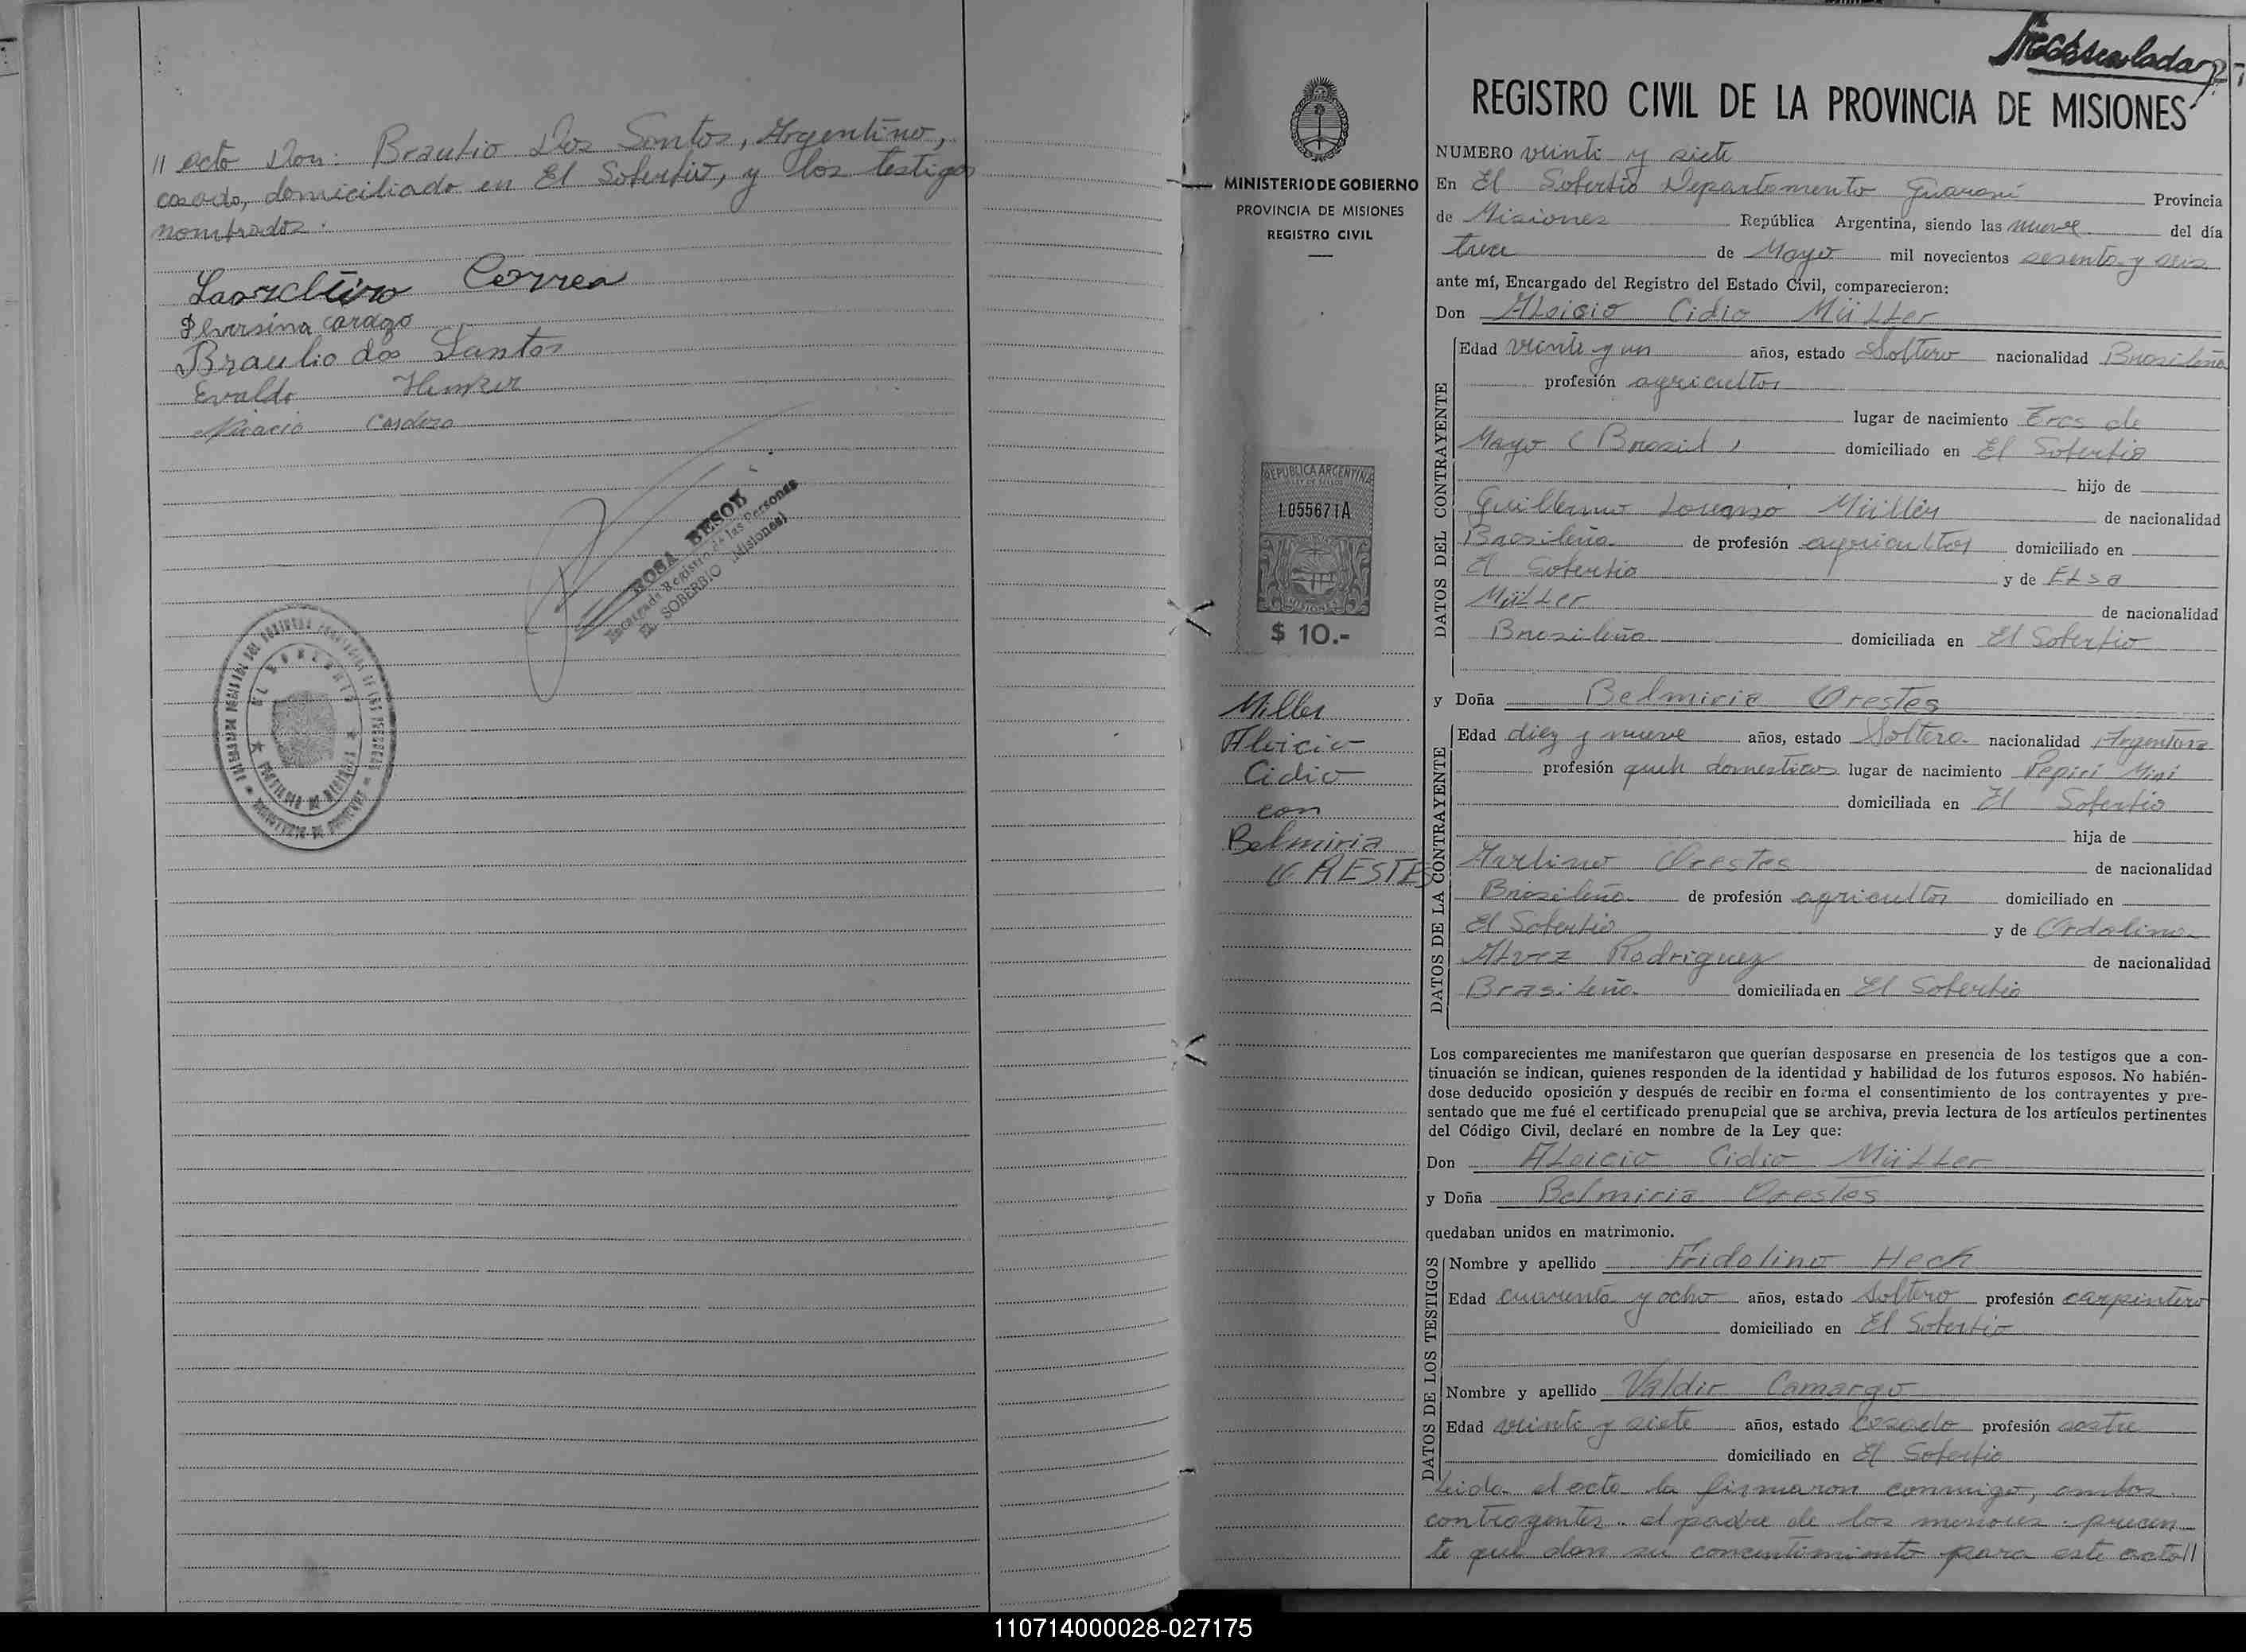 // acto Don: Braulio Dos Santos, Argentino,
casado, domiciliado en El Soberbio, y los testigos
nombrados.
Correa
Braulio dos Santos
Evaldo
Cardozo
ROSA BESOD
Encargada Registro de las Personas
EL SOBERBIO (Misiones)
REGISTRO CIVIL DE LA PROVINCIA DE MISIONES
MINISTERIO DE GOBIERNO
PROVINCIA DE MISIONES
REGISTRO CIVIL
REPUBLICA ARGENTINA
LEY DE SELLOS
1055671A
MISIONES
$ 10.-
Miller
Aloicio
Cidio
con
Belmiria
ORESTES
NUMERO veinti y siete
En El Soberbio Departamento Guaraní Provincia
de Misiones República Argentina, siendo las nueve del día
trece de Mayo mil novecientos sesenta y seis
ante mí, Encargado del Registro del Estado Civil, comparecieron:
Don Aloicio Cidio Müller
DATOS DEL CONTRAYENTE
Edad veinte y un años, estado Soltero nacionalidad Brasileña
profesión agricultor
lugar de nacimiento Tres de
Mayo (Brasil) domiciliado en El Soberbio
hijo de
Guillermo Lorenso Müller de nacionalidad
Brasileña de profesión agricultor domiciliado en
El Soberbio y de Elsa
Müller de nacionalidad
Brasileña domiciliada en El Soberbio
y Doña Belmiria Orestes
DATOS DE LA CONTRAYENTE
Edad diez y nueve años, estado Soltera nacionalidad Argentina
profesión queh domesticos lugar de nacimiento Pepirí Miní
domiciliada en El Soberbio
hija de
Orestes de nacionalidad
Brasileña de profesión agricultor domiciliado en
El Soberbio y de Ordalina
Alvez Rodriguez de nacionalidad
Brasileña domiciliada en El Soberbio
Los comparecientes me manifestaron que querían desposarse en presencia de los testigos que a con-
tinuación se indican, quienes responden de la identidad y habilidad de los futuros esposos. No habién-
dose deducido oposición y después de recibir en forma el consentimiento de los contrayentes y pre-
sentado que me fué el certificado prenupcial que se archiva, previa lectura de los artículos pertinentes
del Código Civil, declaré en nombre de la Ley que:
Don Aloicio Cidio Müller
y Doña Belmiria Orestes
quedaban unidos en matrimonio.
DATOS DE LOS TESTIGOS
Nombre y apellido Fridolino Heck
Edad cuarenta y ocho años, estado Soltero profesión carpintero
domiciliado en El Soberbio
Nombre y apellido Valdir Camargo
Edad veinte y siete años, estado Casado profesión sastre
domiciliado en El Soberbio
Leida el acta la firmaron conmigo, ambos
contragentes. el padre de los menores. precen
te que dan su concentimiento para este acto//
110714000028-027175